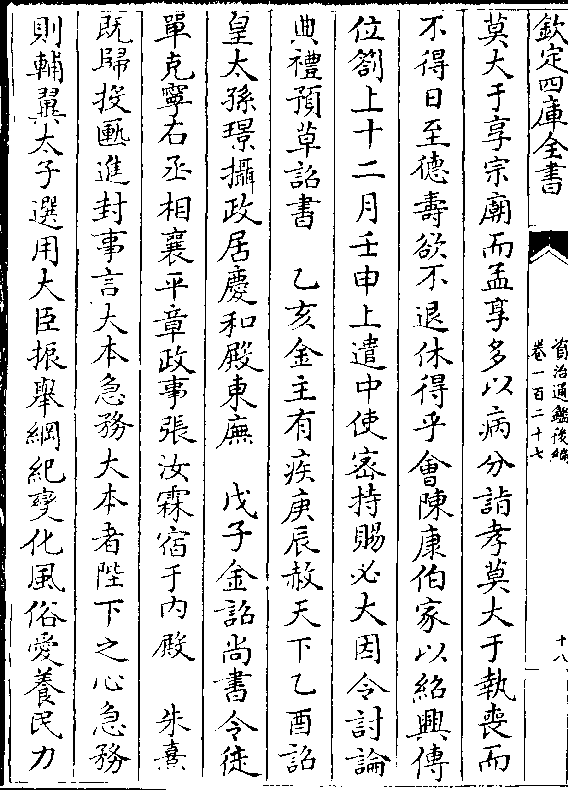 欽定四庫全書
資治通鑑後編
卷一百二十七
十八
莫大于享宗廟而孟享多以病分詣孝莫大于執喪而
不得日至德壽欲不退休得乎會陳康伯家以紹興傳
位劄上十二月壬申上遣中使密持賜必大因令討論
典禮預草詔書　乙亥金主有疾庚辰赦天下乙酉詔
皇太孫璟攝政居慶和殿東廡　戊子金詔尚書令徒
單克寧右丞相襄平章政事張汝霖宿于內殿　朱熹
既歸投匭進封事言大本急務大本者陛下之心急務
則輔翼太子選用大臣振舉綱紀變化風俗愛養民力